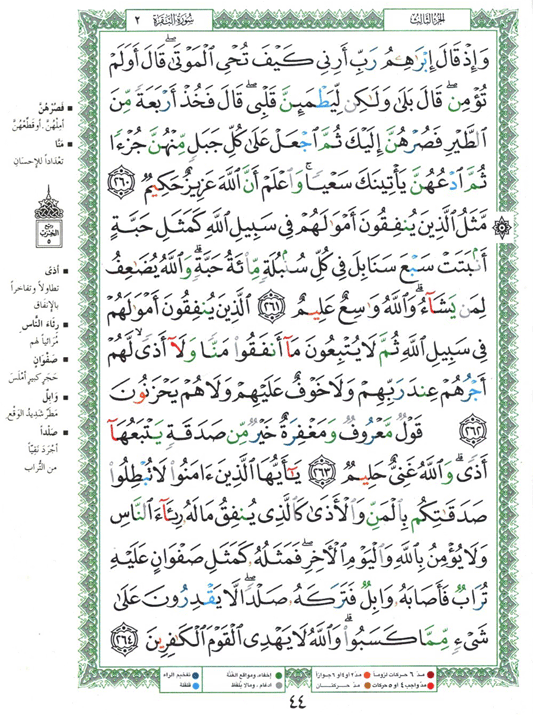 الجزء الثالث
سورة البقرة
٢
وَإِذْ قَالَ إِبْرَٰهِـۧمُ رَبِّ أَرِنِى كَيْفَ تُحْىِ ٱلْمَوْتَىٰ ۖ قَالَ أَوَلَمْ
تُؤْمِن ۖ قَالَ بَلَىٰ وَلَٰكِن لِّيَطْمَئِنَّ قَلْبِى ۖ قَالَ فَخُذْ أَرْبَعَةً مِّنَ
ٱلطَّيْرِ فَصُرْهُنَّ إِلَيْكَ ثُمَّ ٱجْعَلْ عَلَىٰ كُلِّ جَبَلٍ مِّنْهُنَّ جُزْءًا
ثُمَّ ٱدْعُهُنَّ يَأْتِينَكَ سَعْيًا ۚ وَٱعْلَمْ أَنَّ ٱللَّهَ عَزِيزٌ حَكِيمٌ ٢٦٠
مَّثَلُ ٱلَّذِينَ يُنفِقُونَ أَمْوَٰلَهُمْ فِى سَبِيلِ ٱللَّهِ كَمَثَلِ حَبَّةٍ
أَنۢبَتَتْ سَبْعَ سَنَابِلَ فِى كُلِّ سُنۢبُلَةٍ مِّا۟ئَةُ حَبَّةٍ ۗ وَٱللَّهُ يُضَٰعِفُ
لِمَن يَشَآءُ ۗ وَٱللَّهُ وَٰسِعٌ عَلِيمٌ ٢٦١ ٱلَّذِينَ يُنفِقُونَ أَمْوَٰلَهُمْ
فِى سَبِيلِ ٱللَّهِ ثُمَّ لَا يُتْبِعُونَ مَآ أَنفَقُوا۟ مَنًّا وَلَآ أَذًى ۙ لَّهُمْ
أَجْرُهُمْ عِندَ رَبِّهِمْ وَلَا خَوْفٌ عَلَيْهِمْ وَلَا هُمْ يَحْزَنُونَ
٢٦٢ قَوْلٌ مَّعْرُوفٌ وَمَغْفِرَةٌ خَيْرٌ مِّن صَدَقَةٍ يَتْبَعُهَآ
أَذًى ۗ وَٱللَّهُ غَنِىٌّ حَلِيمٌ ٢٦٣ يَٰٓأَيُّهَا ٱلَّذِينَ ءَامَنُوا۟ لَا تُبْطِلُوا۟
صَدَقَٰتِكُم بِٱلْمَنِّ وَٱلْأَذَىٰ كَٱلَّذِى يُنفِقُ مَالَهُۥ رِئَآءَ ٱلنَّاسِ
وَلَا يُؤْمِنُ بِٱللَّهِ وَٱلْيَوْمِ ٱلْءَاخِرِ ۖ فَمَثَلُهُۥ كَمَثَلِ صَفْوَانٍ عَلَيْهِ
تُرَابٌ فَأَصَابَهُۥ وَابِلٌ فَتَرَكَهُۥ صَلْدًا ۖ لَّا يَقْدِرُونَ عَلَىٰ
شَىْءٍ مِّمَّا كَسَبُوا۟ ۗ وَٱللَّهُ لَا يَهْدِى ٱلْقَوْمَ ٱلْكَٰفِرِينَ ٢٦٤
فَصُرْهُنَّ
أمِلْهُنَّ، أو قطّعْهُنَّ
مَنًّا
تعْداداً للإحسان
ربع
الحزب
٥
أذًى
تطاولاً وتفاخراً
بالإنفاق
رئاءَ النّاس
مُرائياً لهم
صَفْوان
حَجَرٍ كبيرٍ أملَسَ
وَابِلٌ
مَطَرٌ شديدُ الوَقْع
صَلْداً
أجْرَدَ نقِيّاً
من التُّراب
مدّ ٦ حركات لزوماً
مدّ ٢ أو ٤ أو ٦ جوازاً
إخفاء، ومواقع الغُنَّة
تفخيم الراء
مدّ واجب ٤ أو ٥ حركات
مدّ حركتان
ادغام، وما لا يُلفَظ
قلقلة
٤٤